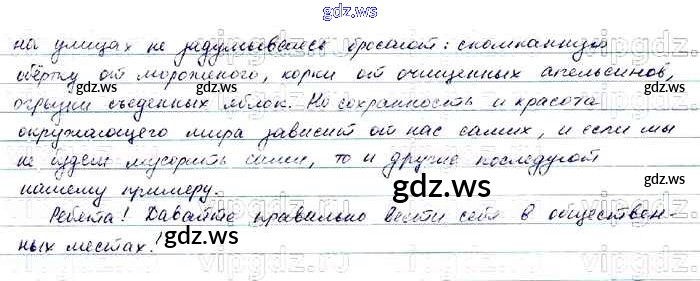 gdz.ws
на улицах не задумываясь бросают: скомканную
обёртку от мороженого, корки от очищенных апельсинов,
огрызки съеденных яблок. Но сохранность и красота
окружающего мира зависит от нас самих, и если мы
не будем мусорить сами, то и другие последуют
нашему примеру.
Ребята! Давайте правильно вести себя в обществен-
ных местах!
gdz.ws
gdz.ws
gdz.ws
gdz.ws
gdz.ws